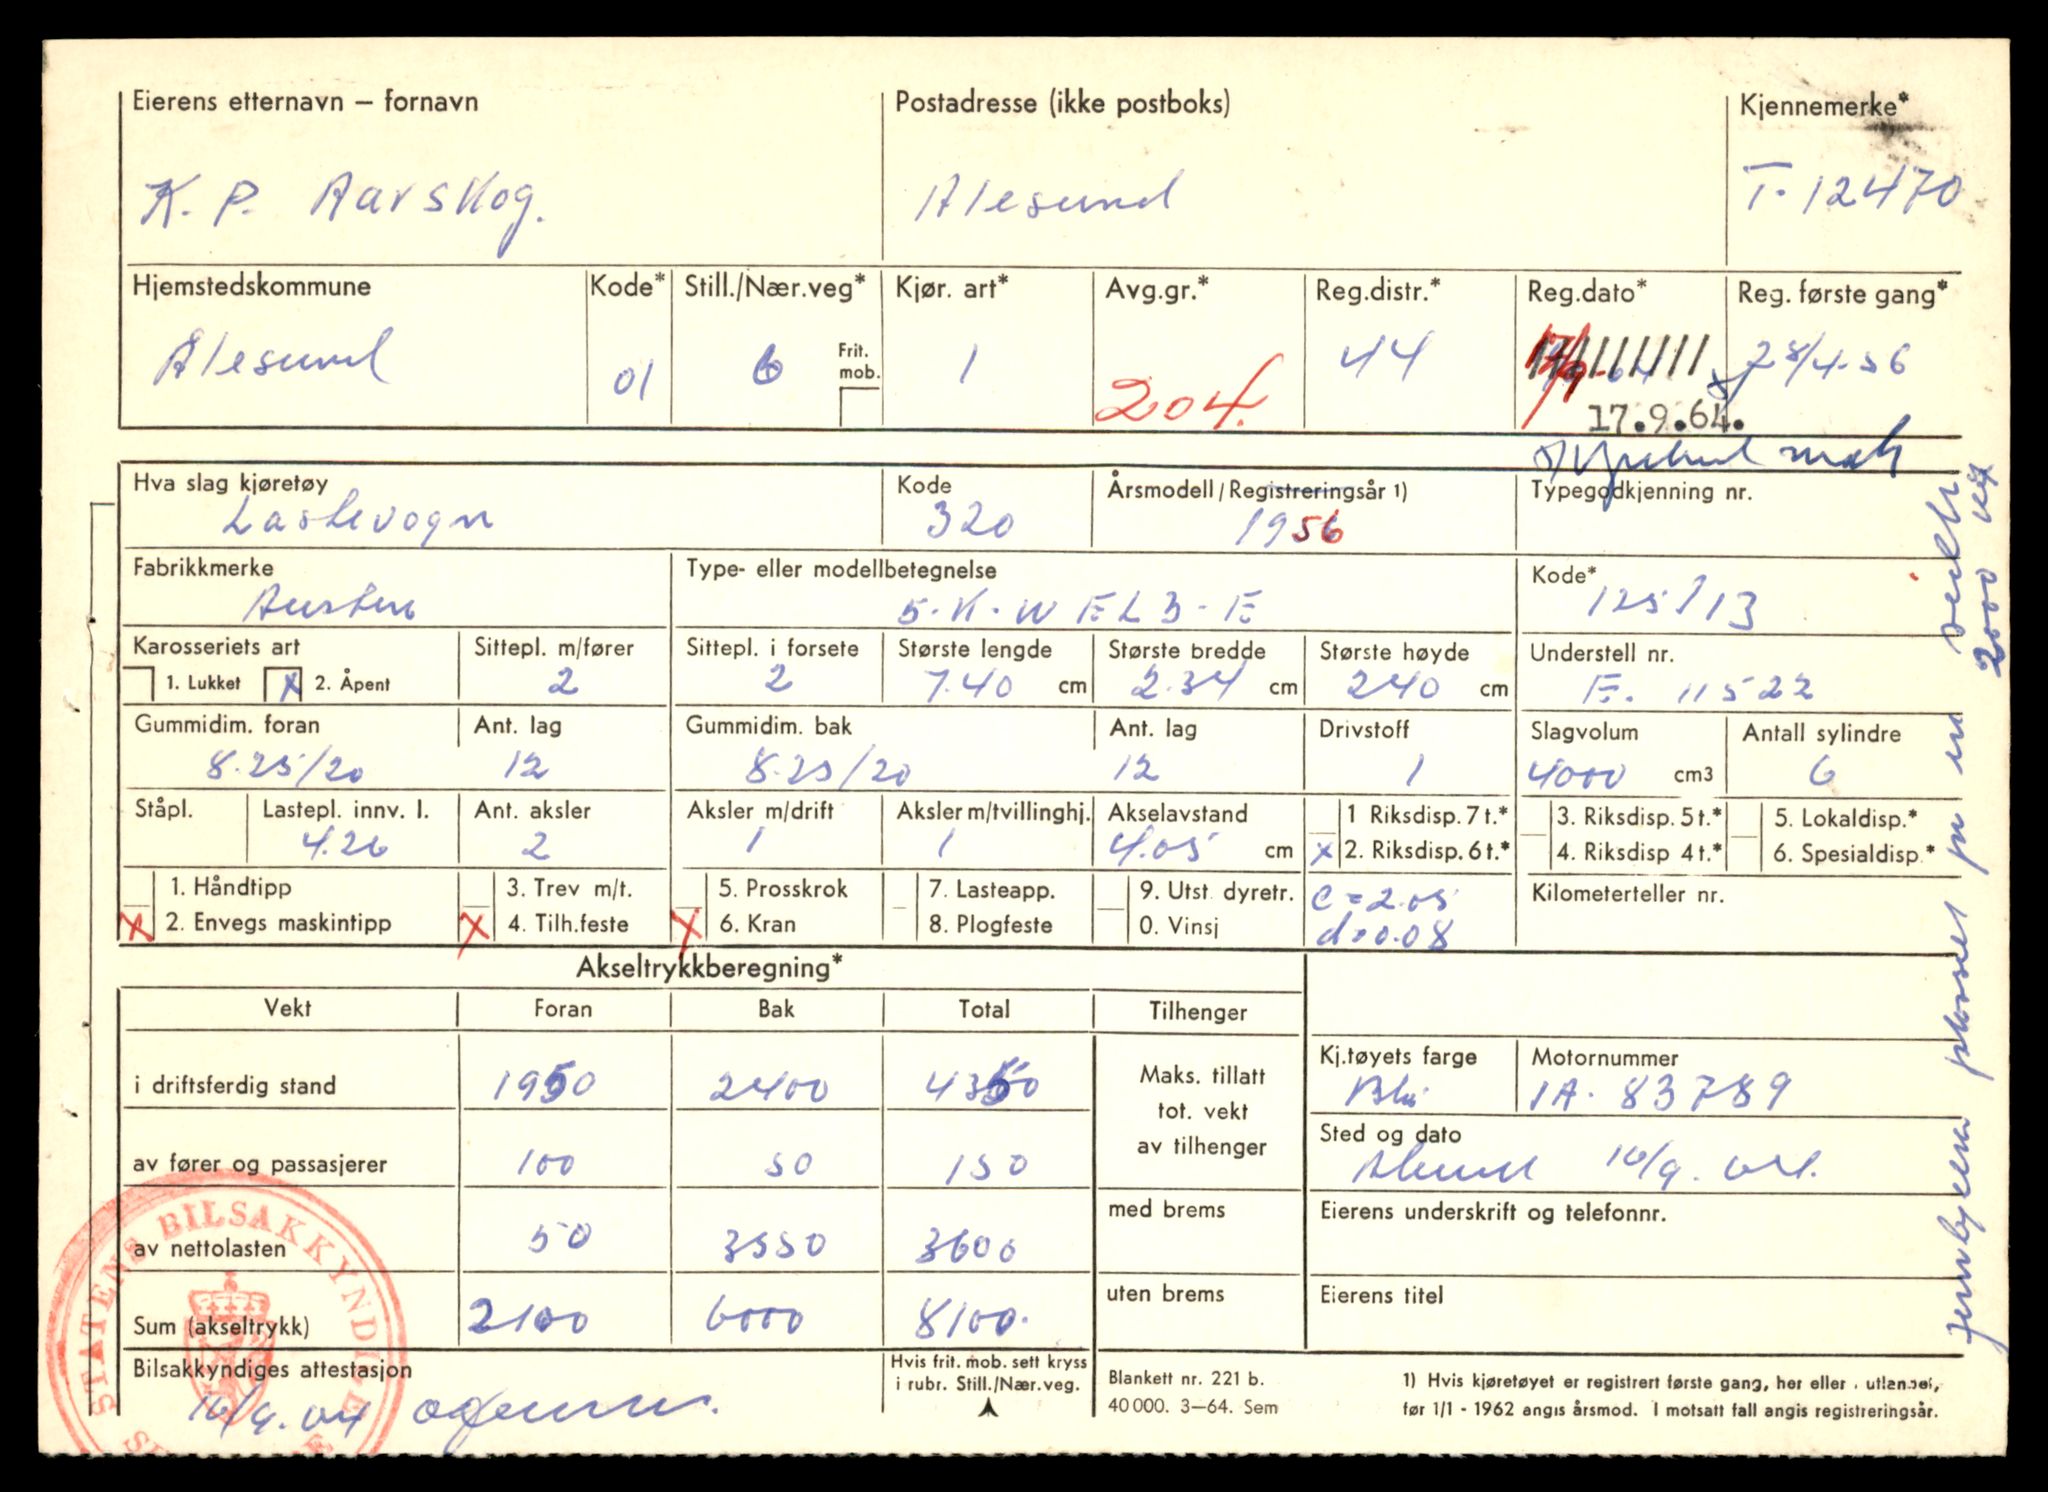 Eierens etternavn – fornavn Postadresse (ikke postboks) Kjennemerke*
K. P. Aarskog. Ålesund T-12470
Hjemstedskommune Kode* Still./Nær.veg* Kjør. art* Avg.gr.* Reg.distr.* Reg.dato* Reg. første gang*
Ålesund 01 6 Frit. mob. 1 204. 44 28/4-56
17.9.64.
Hva slag kjøretøy Kode Årsmodell/Registreringsår 1) Typegodkjenning nr.
Lastevogn 320 1956
Fabrikkmerke Type- eller modellbetegnelse Kode*
Austin 5-K-WEL3-E 125/13
Karosseriets art Sittepl. m/fører Sittepl. i forsete Største lengde Største bredde Største høyde Understell nr.
1. Lukket x 2. Åpent 2 2 7.40 cm 2.34 cm 240 cm E. 11522
Gummidim. foran Ant. lag Gummidim. bak Ant. lag Drivstoff Slagvolum Antall sylindre
8.25/20 12 8.25/20 12 1 4000 cm3 6
Ståpl. Lastepl. innv. l. Ant. aksler Aksler m/drift Aksler m/tvillinghj. Akselavstand 1 Riksdisp. 7 t.* 3. Riksdisp. 5 t.* 5. Lokaldisp.*
4.26 2 1 1 4.05 cm x 2. Riksdisp. 6 t.* 4. Riksdisp 4 t.* 6. Spesialdisp.*
1. Håndtipp 3. Trev m/t. 5. Prosskrok 7. Lasteapp. 9. Utst. dyretr. c=2.05 Kilometerteller nr.
X 2. Envegs maskintipp X 4. Tilh.feste X 6. Kran 8. Plogfeste 0. Vinsj d=0.08
Akseltrykkberegning*
Vekt Foran Bak Total Tilhenger
i driftsferdig stand 1950 2400 4350 Maks. tillatt tot. vekt av tilhenger
Kj.tøyets farge Motornummer
Blå 1A. 83789
av fører og passasjerer 100 50 150
Sted og dato
Ålesund 16/9.64.
av nettolasten 50 3550 3600 med brems
Eierens underskrift og telefonnr.
Sum (akseltrykk) 2100 6000 8100. uten brems
Eierens titel
Bilsakkyndiges attestasjon Hvis frit. mob. sett kryss
i rubr. Still./Nær.veg.
16/9.64
Blankett nr. 221 b.
40 000. 3–64. Sem
1) Hvis kjøretøyet er registrert første gang, her eller i utlandet,
før 1/1 - 1962 angis årsmod. I motsatt fall angis registreringsår.
STATENS BILSAKKYNDIGE
2000 kg